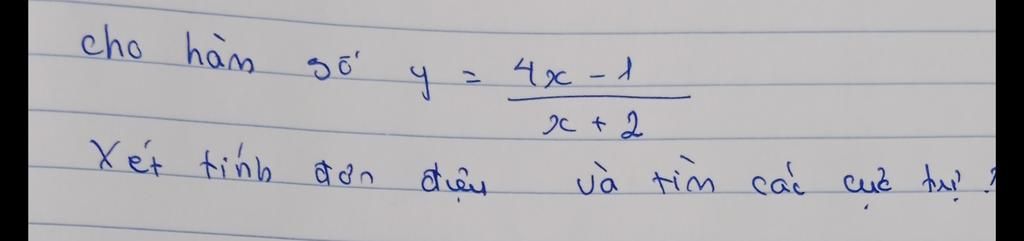 cho hàm số y = 4x - 1 / x + 2
Xét tính đơn điệu và tìm các cực trị?